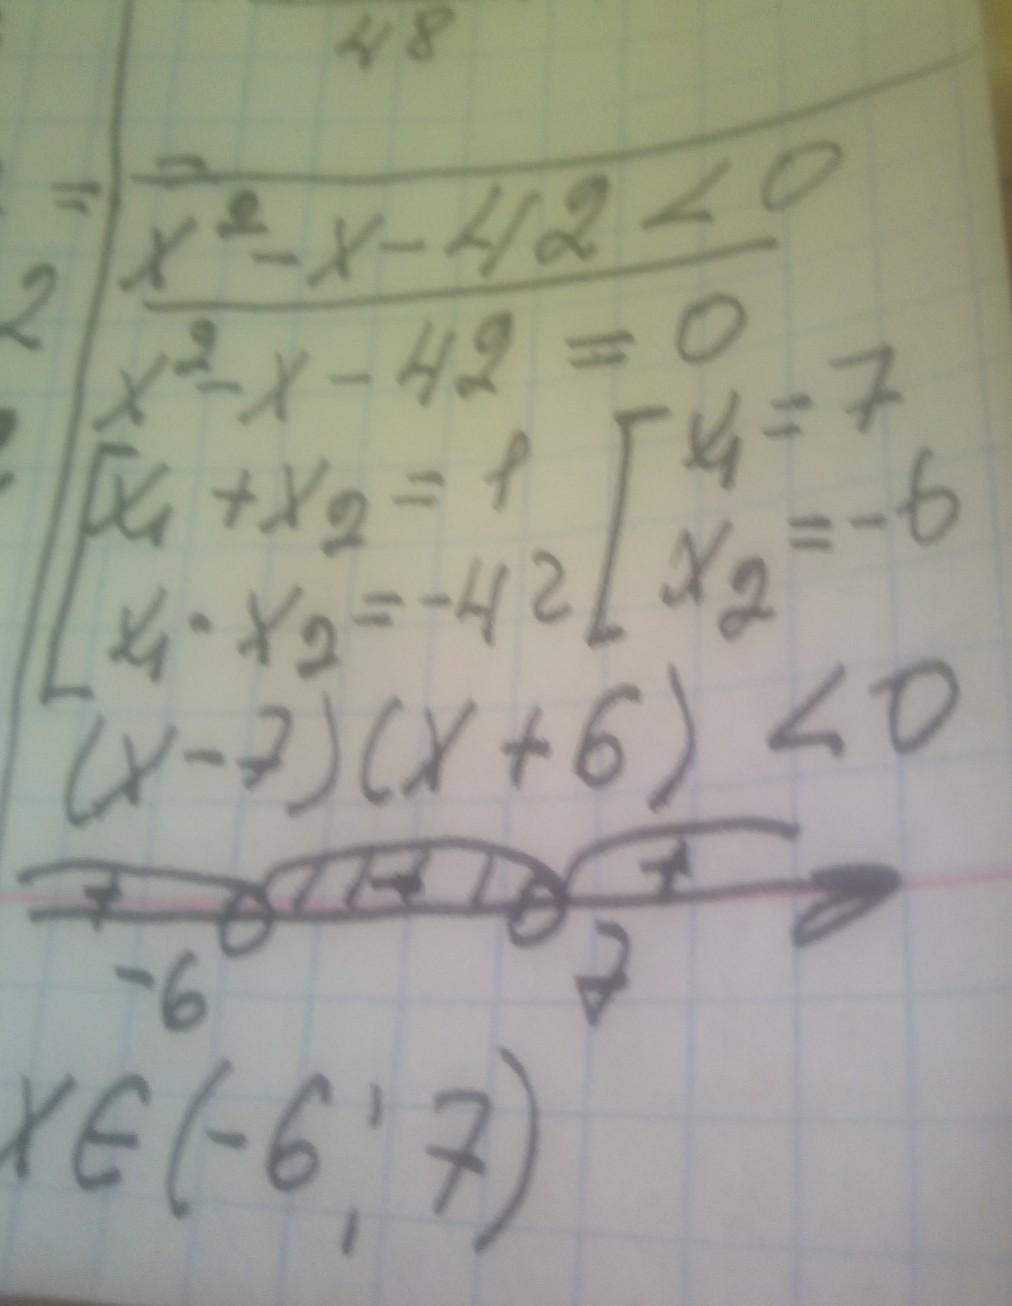 48
=
x² - x - 42 < 0
2
x² - x - 42 = 0
[x₁ + x₂ = 1 [x₁ = 7
x₁ · x₂ = -42 x₂ = -6
(x - 7)(x + 6) < 0
+ - +
-6 7
x ∈ (-6; 7)